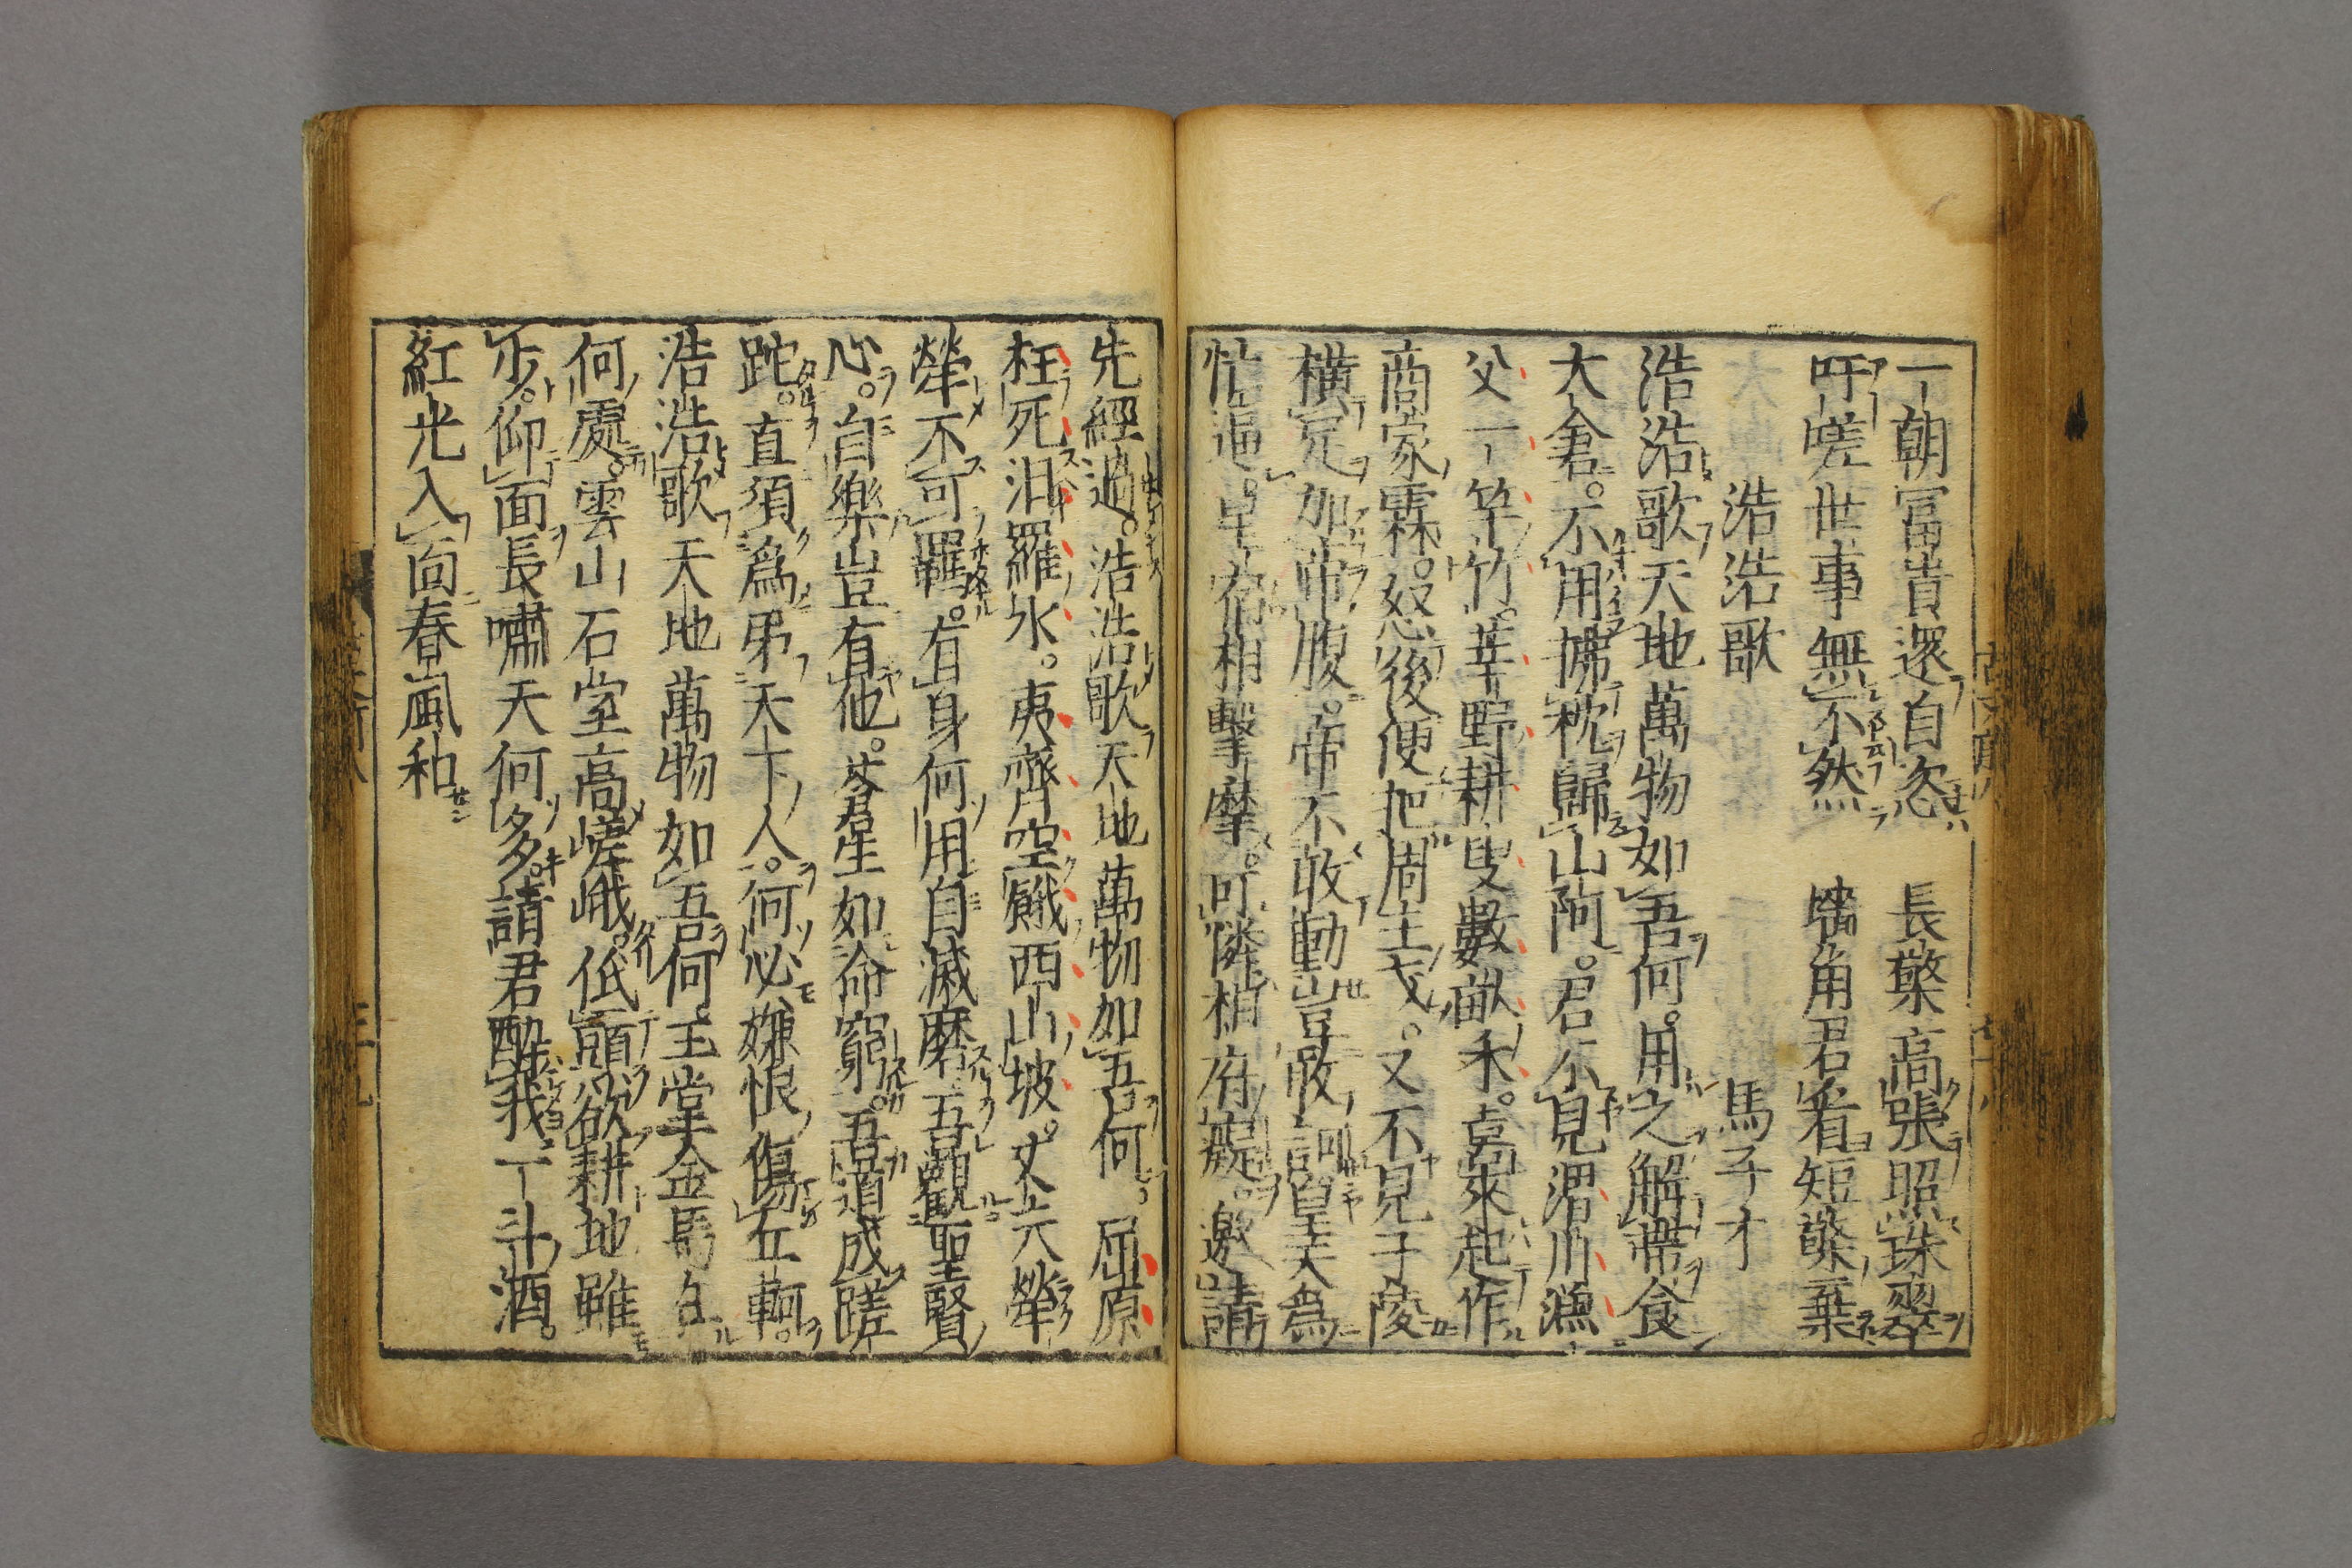 一朝冨貴還自恣　長檠高張照珠翠
吁嗟世事無不然　墻角君看短檠棄
浩浩歌　馬子才
浩浩歌天地萬物如吾何。用之解帶食
大倉。不用拂枕歸山阿。君不見渭川漁
父一竿竹。莘野耕叟數畝禾。喜來起作
商家霖。怒後便把周王戈。又不見子陵
橫足加帝腹。帝不敢動豈敢訶皇天為
忙逼。星宿相擊摩。可憐相府癡。邀請
先經過。浩浩歌天地萬物如吾何。屈原
枉死汨羅水。夷齊空餓西山坡。丈夫犖
犖不可羈。有身何用自滅磨吾觀聖賢
心。自樂豈有他。蒼生如命窮。吾道成蹉
跎。直須為弔天下人。何必嫌恨傷丘軻。
浩浩歌天地萬物如吾何。玉堂金馬在
何處。雲山石室高嵯峨。低頭欲耕地雖
少。仰面長嘯天何多。請君醉我一斗酒。
紅光入面春風和